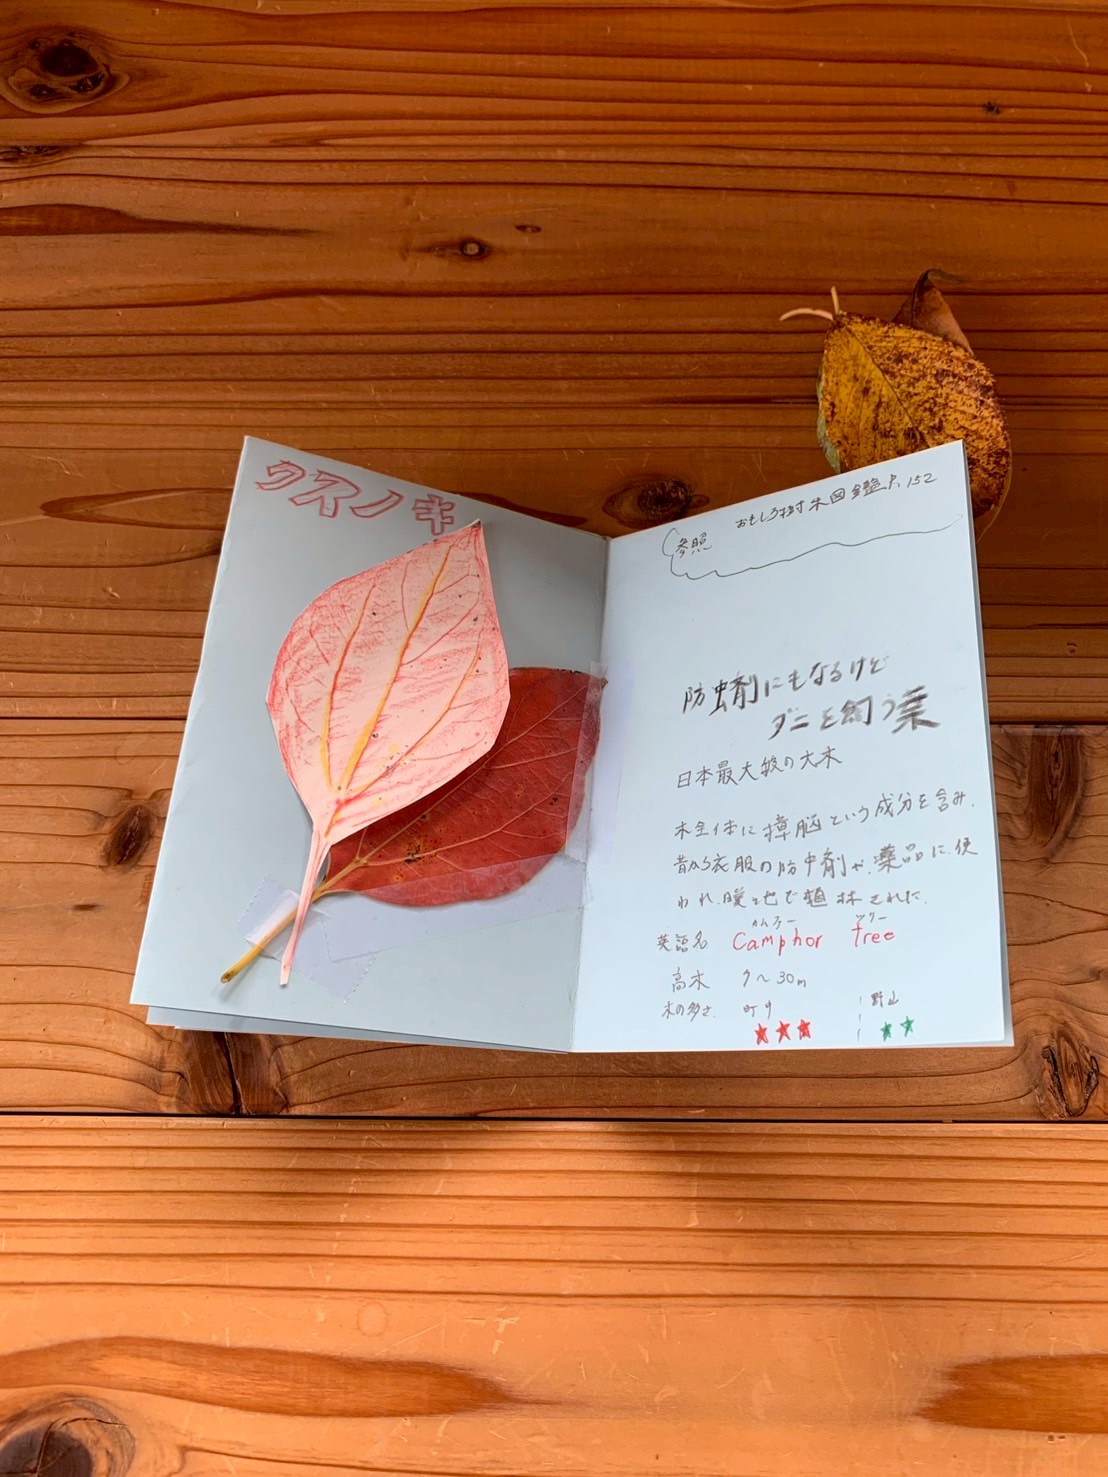 クスノキ
おもしろ樹木図鑑P.152
参照
防虫剤にもなるけど
ダニを飼う葉
日本最大級の大木
木全体に樟脳という成分を含み、
昔から衣服の防虫剤や、薬品に使
われ、暖地で植林された。
カムファー ツリー
英語名 Camphor Tree
高木 9〜30m
木の多さ 町中 野山
★★★ ★★